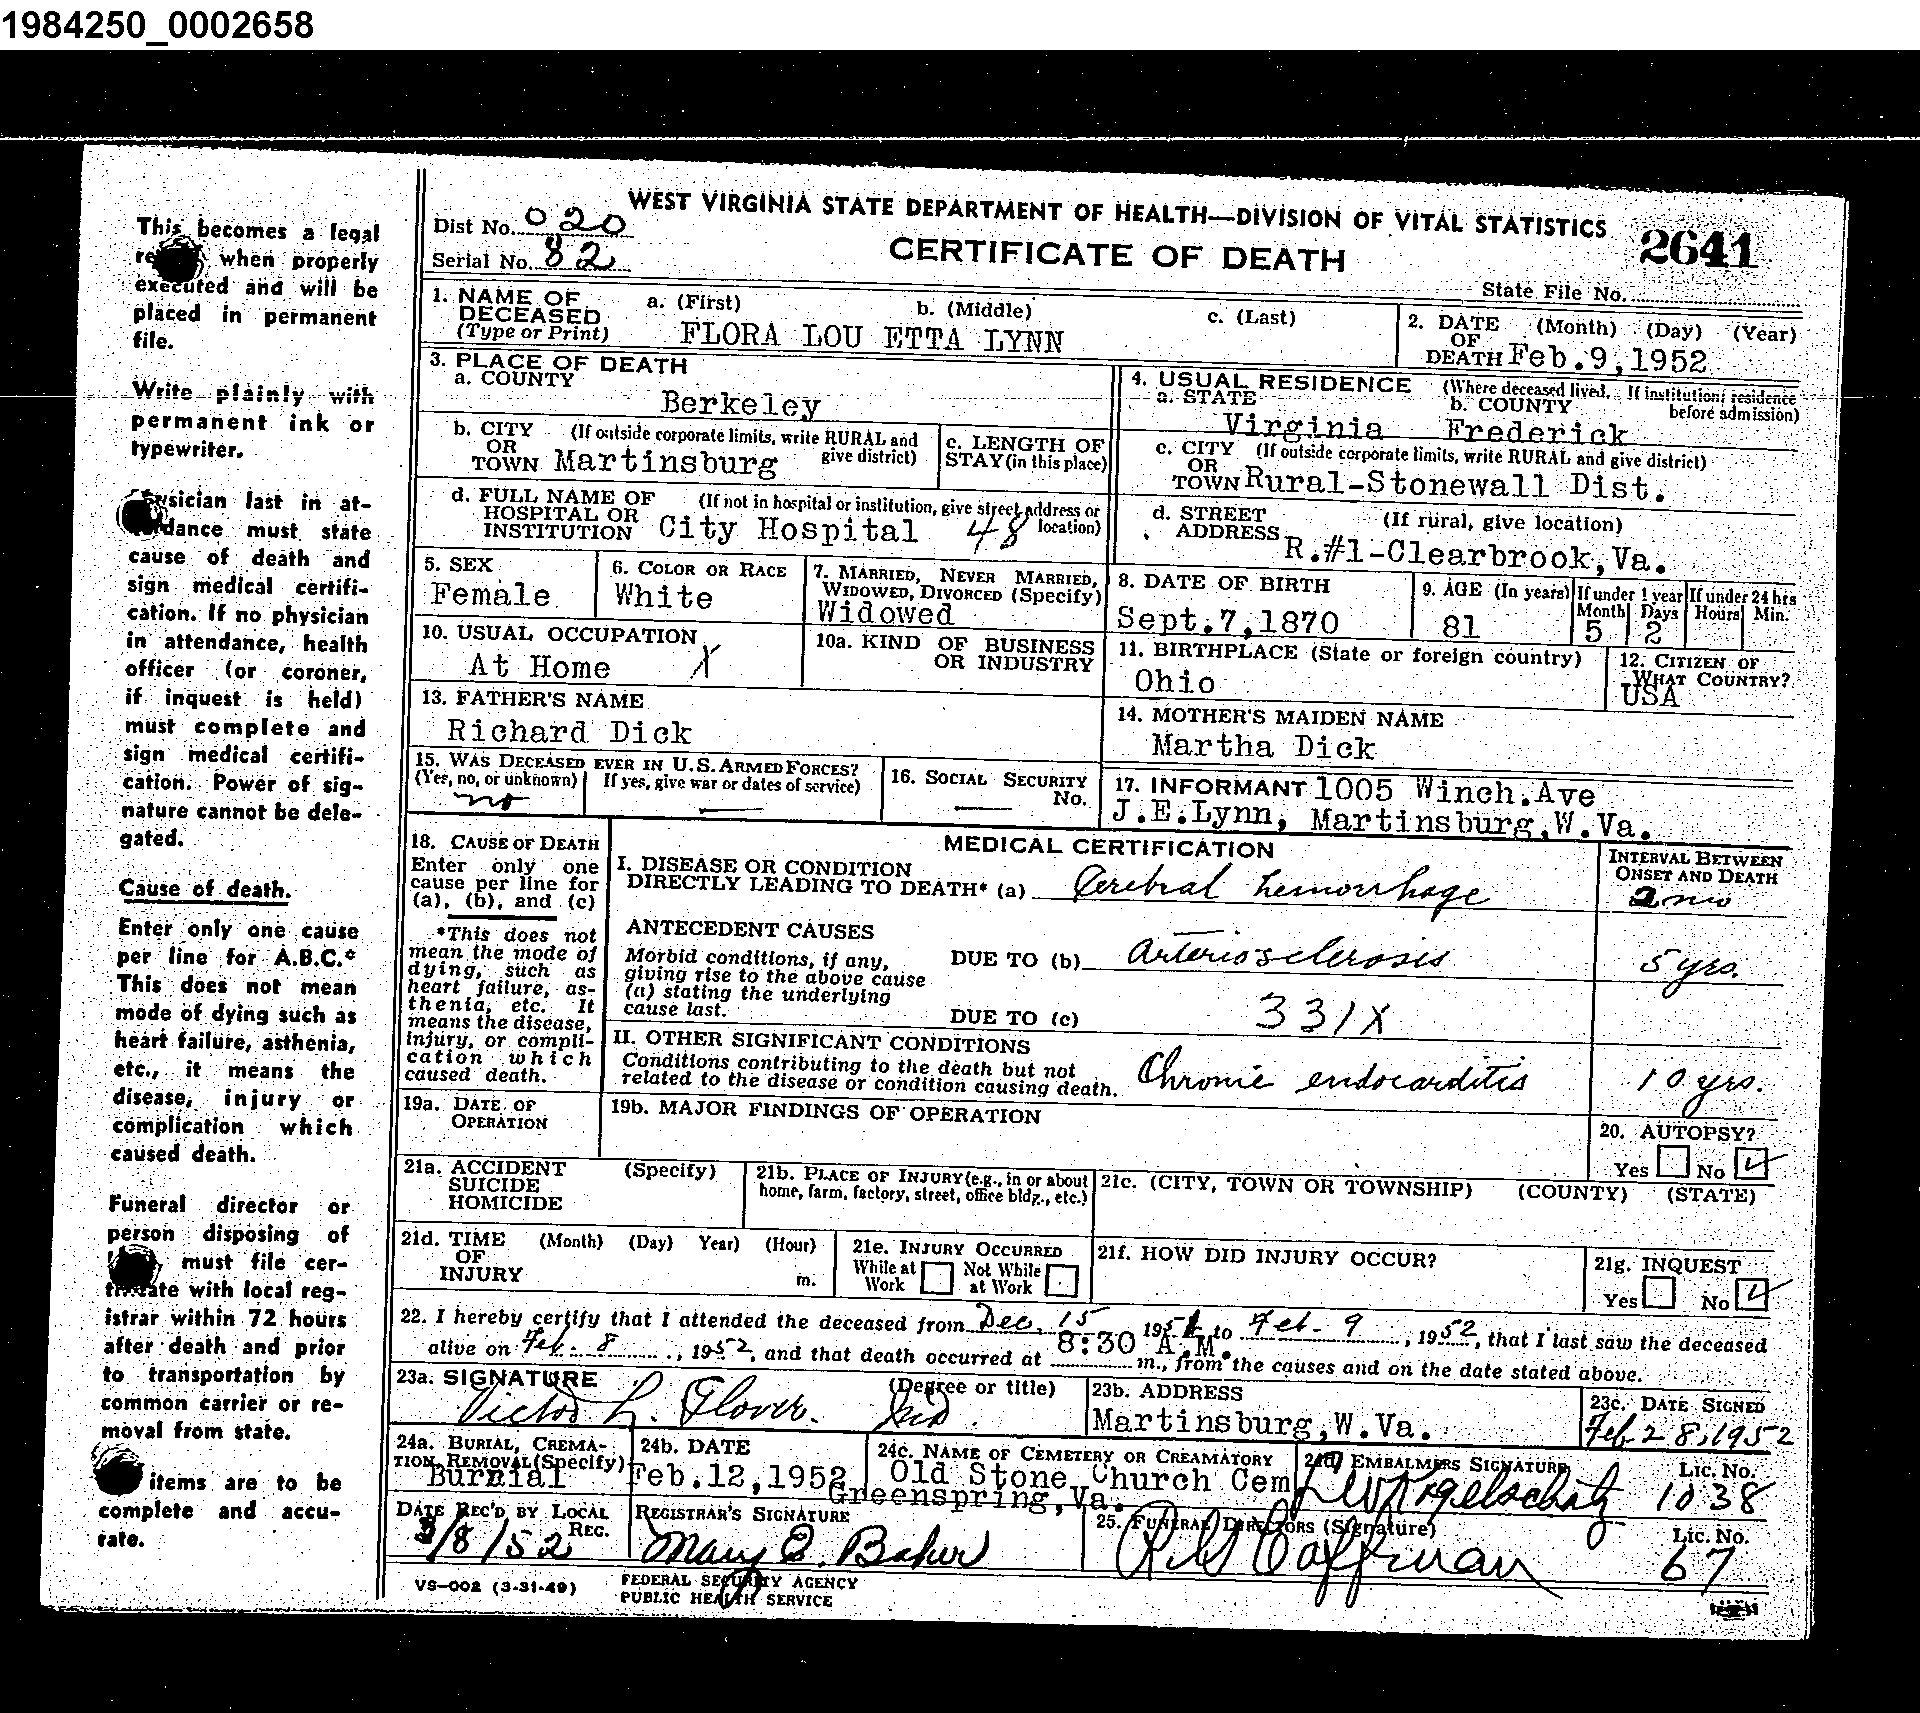 1984250_0002658
This becomes a legal
when properly
executed and will be
placed in permanent
file.
Write plainly with
permanent ink or
typewriter.
last in at-
must state
cause of death and
sign medical certifi-
cation. If no physician
in attendance, health
officer (or coroner,
if inquest is held)
must complete and
sign medical certifi-
cation. Power of sig-
nature cannot be dele-
gated.
Cause of death.
Enter only one cause
per line for A.B.C.*
This does not mean
mode of dying such as
heart failure, asthenia,
etc., it means the
disease, injury or
complication which
caused death.
Funeral director or
person disposing of
must file cer-
with local reg-
istrar within 72 hours
after death and prior
to transportation by
common carrier or re-
moval from state.
items are to be
complete and accu-
rate.
WEST VIRGINIA STATE DEPARTMENT OF HEALTH—DIVISION OF VITAL STATISTICS
Dist No. 020
Serial No. 82
CERTIFICATE OF DEATH
2641
State File No.
1. NAME OF DECEASED (Type or Print) a. (First) b. (Middle) c. (Last)
FLORA LOU ETTA LYNN
2. DATE OF DEATH (Month) (Day) (Year)
Feb.9,1952
3. PLACE OF DEATH
a. COUNTY
Berkeley
4. USUAL RESIDENCE (Where deceased lived. If institution; residence before admission)
a. STATE b. COUNTY
Virginia Frederick
b. CITY OR TOWN (If outside corporate limits, write RURAL and give district)
Martinsburg
c. LENGTH OF STAY (in this place)
c. CITY OR TOWN (If outside corporate limits, write RURAL and give district)
Rural-Stonewall Dist.
d. FULL NAME OF HOSPITAL OR INSTITUTION (If not in hospital or institution, give street address or location)
City Hospital 48
d. STREET ADDRESS (If rural, give location)
R.#1-Clearbrook,Va.
5. SEX
Female
6. COLOR OR RACE
White
7. MARRIED, NEVER MARRIED, WIDOWED, DIVORCED (Specify)
Widowed
8. DATE OF BIRTH
Sept.7,1870
9. AGE (In years) If under 1 year If under 24 hrs
Month Days Hours Min.
81 5 2
10. USUAL OCCUPATION
At Home X
10a. KIND OF BUSINESS OR INDUSTRY
11. BIRTHPLACE (State or foreign country)
Ohio
12. CITIZEN OF WHAT COUNTRY?
USA
13. FATHER'S NAME
Richard Dick
14. MOTHER'S MAIDEN NAME
Martha Dick
15. WAS DECEASED EVER IN U.S. ARMED FORCES?
(Yes, no, or unknown) If yes, give war or dates of service)
no —
16. SOCIAL SECURITY No.
—
17. INFORMANT 1005 Winch.Ave
J.E.Lynn, Martinsburg,W.Va.
18. CAUSE OF DEATH
Enter only one
cause per line for
(a), (b), and (c)
*This does not
mean the mode of
dying, such as
heart failure, as-
thenia, etc. It
means the disease,
injury, or compli-
cation which
caused death.
MEDICAL CERTIFICATION
INTERVAL BETWEEN ONSET AND DEATH
I. DISEASE OR CONDITION
DIRECTLY LEADING TO DEATH* (a) Cerebral hemorrhage 2 mo
ANTECEDENT CAUSES
Morbid conditions, if any,
giving rise to the above cause
(a) stating the underlying
cause last.
DUE TO (b) Arteriosclerosis 5 yrs.
DUE TO (c) 331X
II. OTHER SIGNIFICANT CONDITIONS
Conditions contributing to the death but not
related to the disease or condition causing death. Chronic endocarditis 10 yrs.
19a. DATE OF OPERATION
19b. MAJOR FINDINGS OF OPERATION
20. AUTOPSY?
Yes No ✓
21a. ACCIDENT SUICIDE HOMICIDE (Specify)
21b. PLACE OF INJURY (e.g., in or about home, farm, factory, street, office bldg., etc.)
21c. (CITY, TOWN OR TOWNSHIP) (COUNTY) (STATE)
21d. TIME OF INJURY (Month) (Day) Year) (Hour) m.
21e. INJURY OCCURRED
While at Work Not While at Work
21f. HOW DID INJURY OCCUR?
21g. INQUEST
Yes No ✓
22. I hereby certify that I attended the deceased from Dec. 15 1951 to Feb. 9, 1952, that I last saw the deceased
alive on Feb. 8, 1952, and that death occurred at 8:30 A.M. m., from the causes and on the date stated above.
23a. SIGNATURE (Degree or title)
Victor L. Glover. Md.
23b. ADDRESS
Martinsburg,W.Va.
23c. DATE SIGNED
Feb 28, 1952
24a. BURIAL, CREMA-
TION REMOVAL (Specify)
Burnial
24b. DATE
Feb.12,1952
24c. NAME OF CEMETERY OR CREAMATORY
Old Stone Church Cem
Greenspring,Va.
24d. EMBALMERS SIGNATURE Lic. No.
1038
DATE REC'D BY LOCAL REG.
3/8/52
REGISTRAR'S SIGNATURE
Mary E. Baker
25. FUNERAL DIRECTORS (Signature) Lic. No.
Coffman 67
VS-002 (3-31-49)
FEDERAL SECURITY AGENCY
PUBLIC HEALTH SERVICE